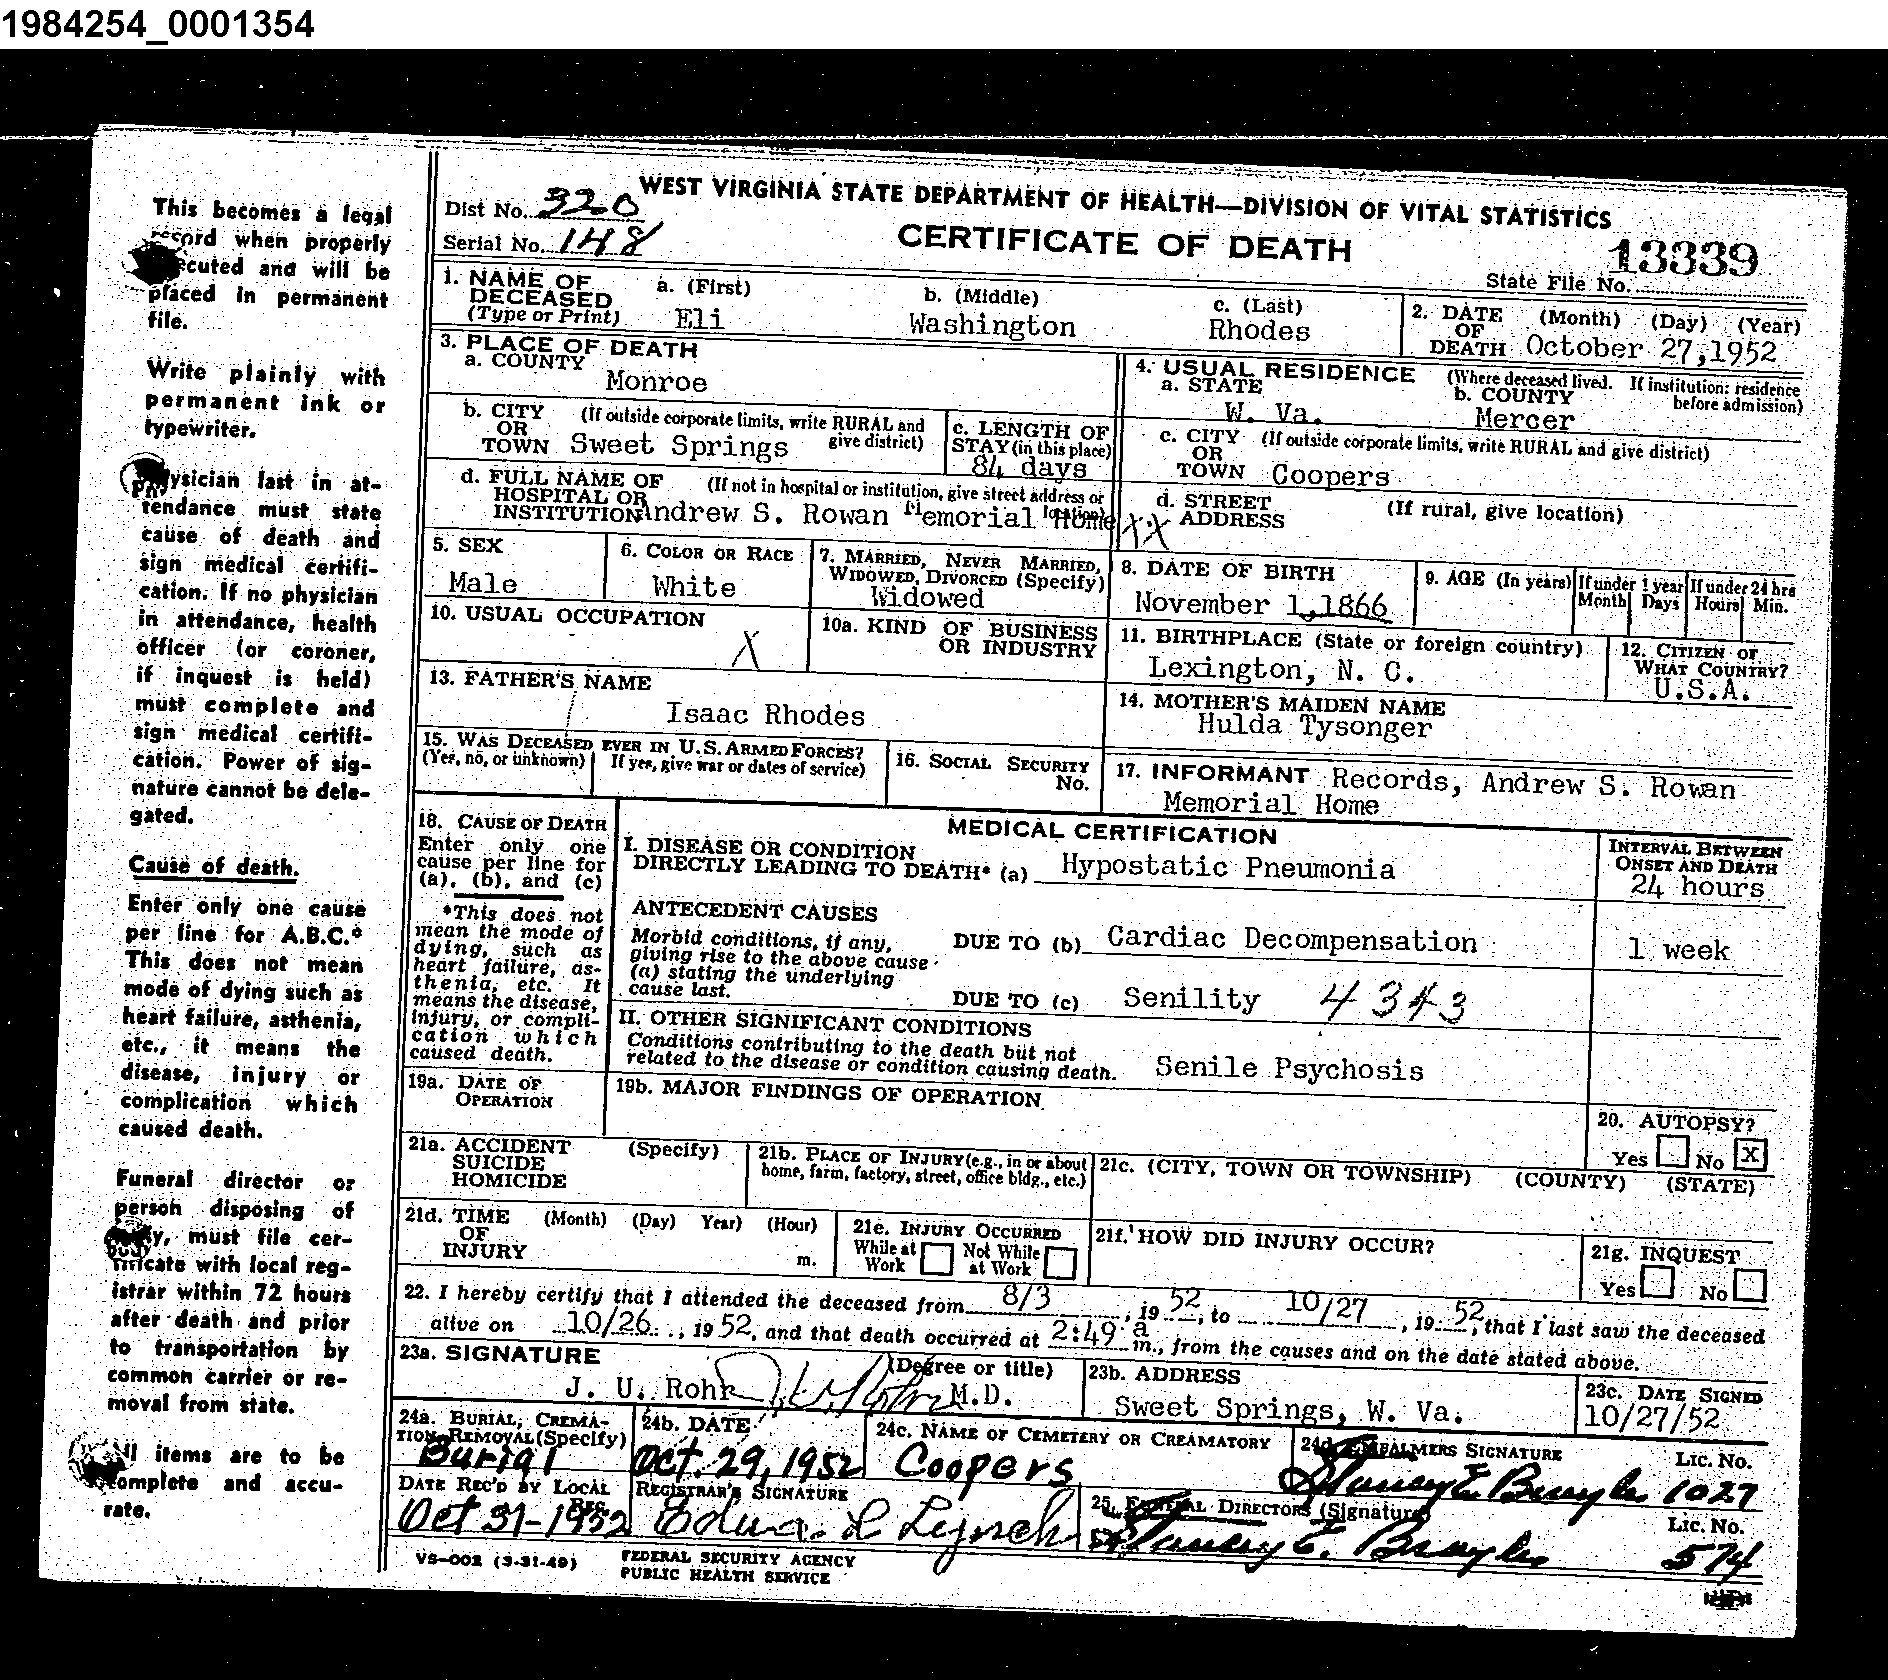 1984254_0001354
This becomes a legal
record when properly
executed and will be
placed in permanent
file.
Write plainly with
permanent ink or
typewriter.
Physician last in at-
tendance must state
cause of death and
sign medical certifi-
cation. If no physician
in attendance, health
officer (or coroner,
if inquest is held)
must complete and
sign medical certifi-
cation. Power of sig-
nature cannot be dele-
gated.
Cause of death.
Enter only one cause
per line for A.B.C.*
This does not mean
mode of dying such as
heart failure, asthenia,
etc., it means the
disease, injury or
complication which
caused death.
Funeral director or
person disposing of
body, must file cer-
tificate with local reg-
istrar within 72 hours
after death and prior
to transportation by
common carrier or re-
moval from state.
All items are to be
complete and accu-
rate.
WEST VIRGINIA STATE DEPARTMENT OF HEALTH—DIVISION OF VITAL STATISTICS
Dist No. 320
Serial No. 148
CERTIFICATE OF DEATH
13339
State File No.
1. NAME OF DECEASED (Type or Print) a. (First) Eli b. (Middle) Washington c. (Last) Rhodes
2. DATE OF DEATH (Month) (Day) (Year) October 27,1952
3. PLACE OF DEATH
a. COUNTY Monroe
b. CITY OR TOWN (If outside corporate limits, write RURAL and give district) Sweet Springs
c. LENGTH OF STAY (in this place) 84 days
d. FULL NAME OF HOSPITAL OR INSTITUTION (If not in hospital or institution, give street address or location) Andrew S. Rowan Memorial Home
4. USUAL RESIDENCE (Where deceased lived. If institution: residence before admission)
a. STATE W. Va. b. COUNTY Mercer
c. CITY OR TOWN (If outside corporate limits, write RURAL and give district) Coopers
d. STREET ADDRESS (If rural, give location) XX
5. SEX Male
6. COLOR OR RACE White
7. MARRIED, NEVER MARRIED, WIDOWED, DIVORCED (Specify) Widowed
8. DATE OF BIRTH November 1,1866
9. AGE (In years) If under 1 year Month Days If under 24 hrs Hours Min.
10. USUAL OCCUPATION X
10a. KIND OF BUSINESS OR INDUSTRY
11. BIRTHPLACE (State or foreign country) Lexington, N. C.
12. CITIZEN OF WHAT COUNTRY? U.S.A.
13. FATHER'S NAME Isaac Rhodes
14. MOTHER'S MAIDEN NAME Hulda Tysonger
15. WAS DECEASED EVER IN U.S. ARMED FORCES? (Yes, no, or unknown) If yes, give war or dates of service)
16. SOCIAL SECURITY No.
17. INFORMANT Records, Andrew S. Rowan Memorial Home
MEDICAL CERTIFICATION
18. CAUSE OF DEATH
Enter only one
cause per line for
(a), (b), and (c)
*This does not
mean the mode of
dying, such as
heart failure, as-
thenia, etc. It
means the disease,
injury, or compli-
cation which
caused death.
INTERVAL BETWEEN ONSET AND DEATH
I. DISEASE OR CONDITION
DIRECTLY LEADING TO DEATH* (a) Hypostatic Pneumonia 24 hours
ANTECEDENT CAUSES
Morbid conditions, if any,
giving rise to the above cause
(a) stating the underlying
cause last.
DUE TO (b) Cardiac Decompensation 1 week
DUE TO (c) Senility 4343
II. OTHER SIGNIFICANT CONDITIONS
Conditions contributing to the death but not
related to the disease or condition causing death. Senile Psychosis
19a. DATE OF OPERATION
19b. MAJOR FINDINGS OF OPERATION
20. AUTOPSY? Yes No X
21a. ACCIDENT SUICIDE HOMICIDE (Specify)
21b. PLACE OF INJURY (e.g., in or about home, farm, factory, street, office bldg., etc.)
21c. (CITY, TOWN OR TOWNSHIP) (COUNTY) (STATE)
21d. TIME OF INJURY (Month) (Day) Year) (Hour) m.
21e. INJURY OCCURRED While at Work Not While at Work
21f. HOW DID INJURY OCCUR?
21g. INQUEST Yes No
22. I hereby certify that I attended the deceased from 8/3, 19 52, to 10/27, 19 52, that I last saw the deceased
alive on 10/26, 19 52, and that death occurred at 2:49 a m., from the causes and on the date stated above.
23a. SIGNATURE (Degree or title) J. U. Rohr M.D.
23b. ADDRESS Sweet Springs, W. Va.
23c. DATE SIGNED 10/27/52
24a. BURIAL, CREMATION, REMOVAL (Specify) Burial
24b. DATE Oct. 29, 1952
24c. NAME OF CEMETERY OR CREAMATORY Coopers
24d. EMBALMERS SIGNATURE LIC. No. 1027
DATE REC'D BY LOCAL REG. Oct 31-1952
REGISTRAR'S SIGNATURE Lynch
25. FUNERAL DIRECTORS (Signature) LIC. No. 574
VS-002 (3-31-49)
FEDERAL SECURITY AGENCY
PUBLIC HEALTH SERVICE